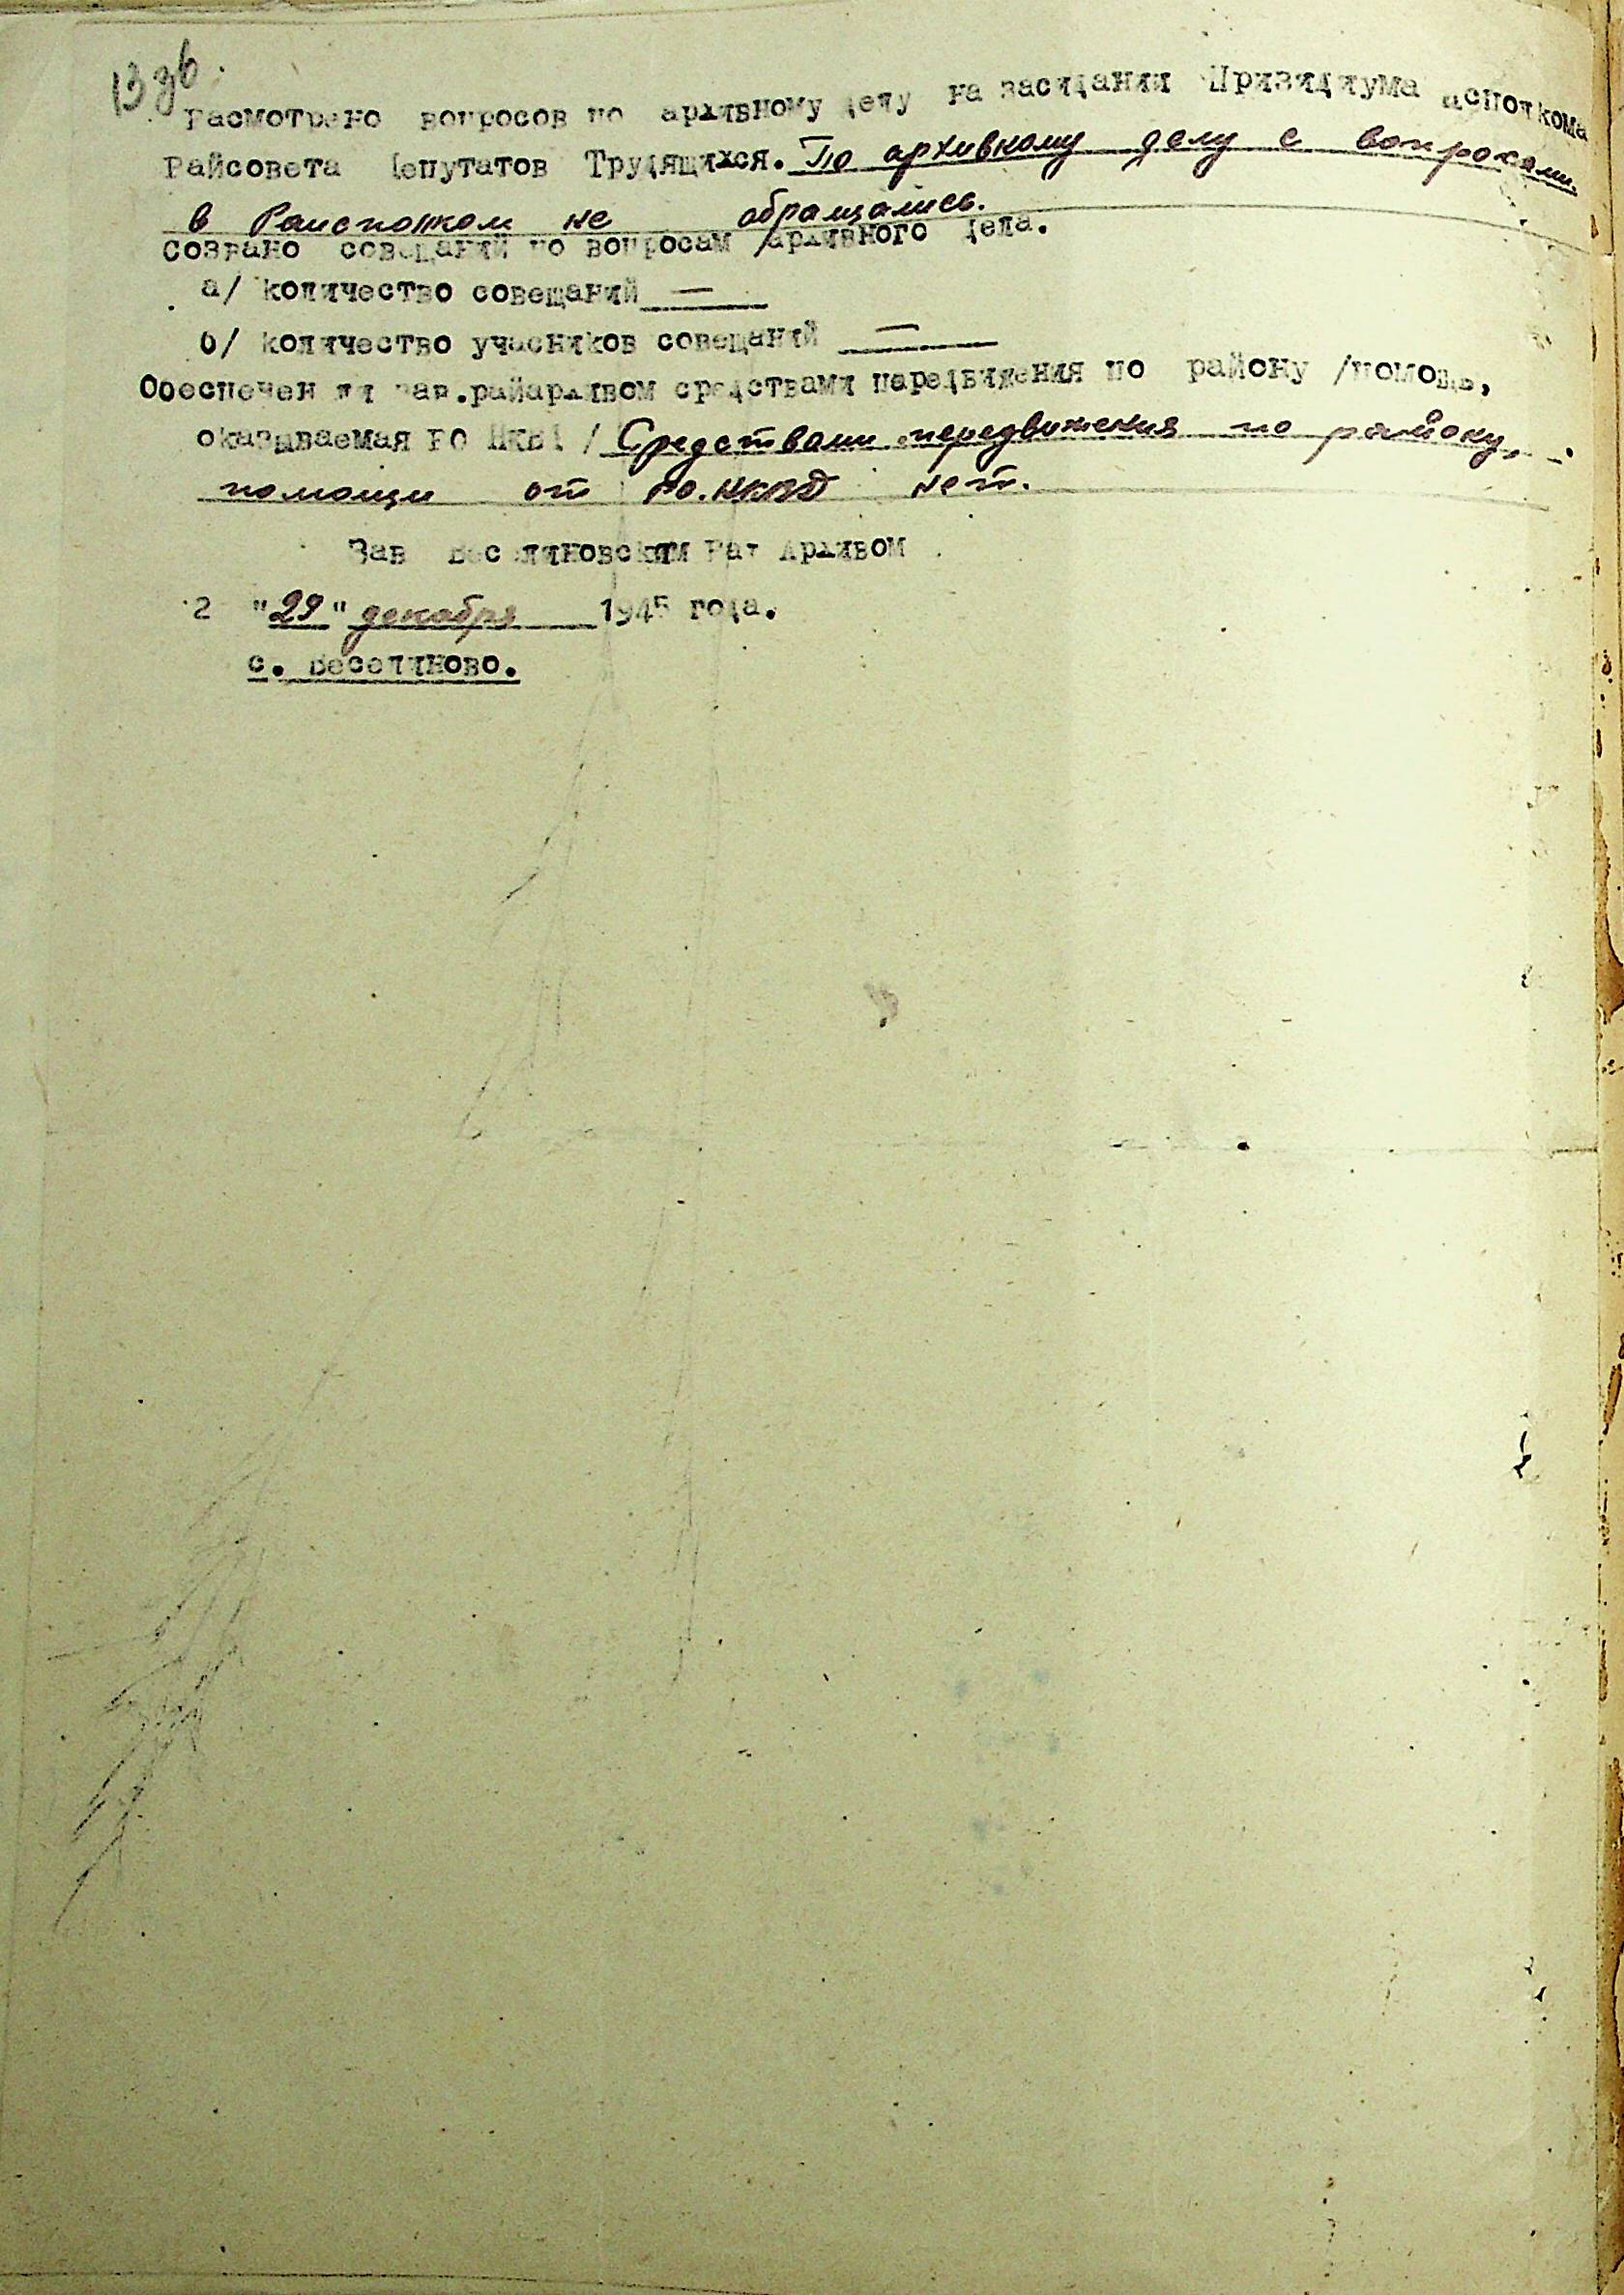 13 зв.
Расмотрено вопросов по архивному делу на засидании Призидиума исполкома
Райсовета Депутатов Трудящихся. По архивному делу с вопросами
в Раисполком не обращались.
Созвано совещаний по вопросам архивного дела.
а/ количество совещаний —
б/ количество учасников совещаний —
Обеспечен ли зав.райархивом средствами передвижения по району /помощь,
оказываемая РО НКВД / Средствами передвижения по району,
помощи от ро.НКВД нет.
Зав Веселиновским Рай Архивом
2 "29" декабря 1945 года.
с. Веселиново.